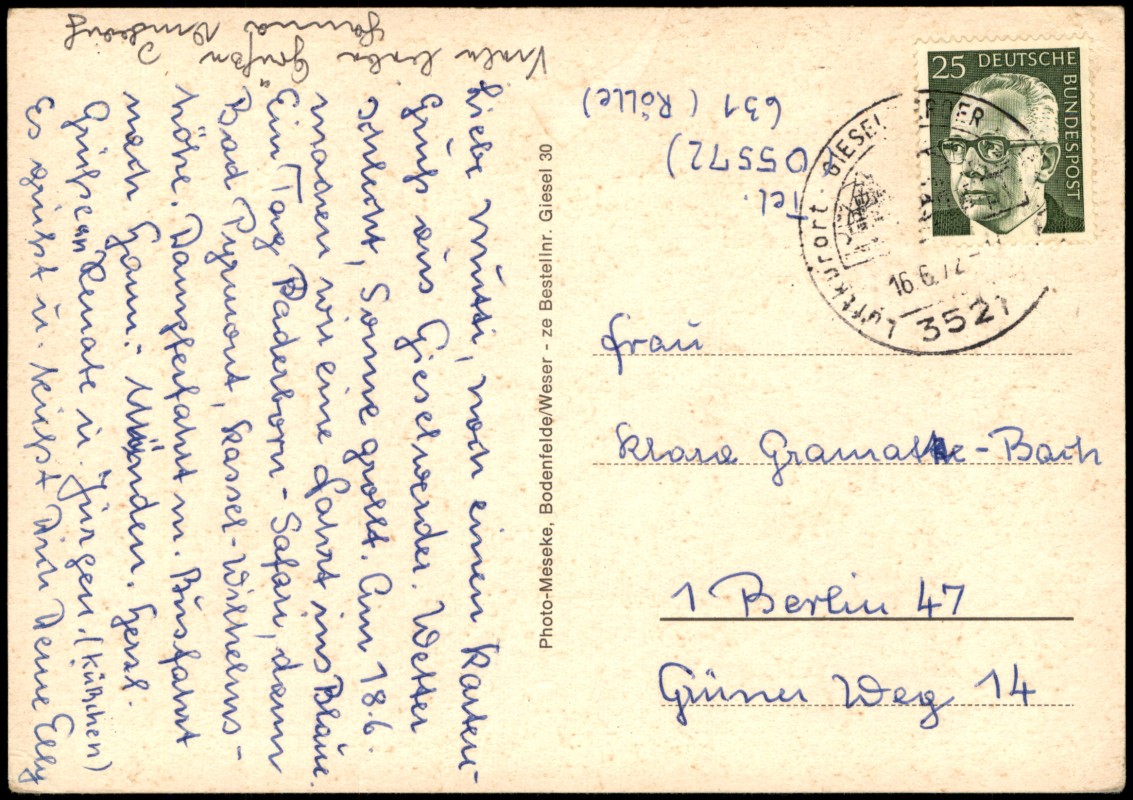 Liebe Mutti, noch einen Karten-
Gruß aus Gieselwerder. Wetter
schlecht, Sonne grollt. Am 18.6.
machen wir eine Fahrt ins Blaue.
Ein Tag Paderborn-Safari, dann
Bad Pyrmont, Kassel-Wilhelms-
höhe. Dampferfahrt m. Busfahrt
nach Hann. Münden. Herzl.
Grüße an Renate u. Jürgen. (Küßchen)
Es grüßt u. küßt Dich Deine Elly
Viele liebe Grüße
Hanna
Photo-Meseke, Bodenfelde/Weser - ze Bestellnr. Giesel 30
Tel.
05572)
631 (Rölle)
25 DEUTSCHE
BUNDESPOST
Luftkurort
16.6.72
3521
Frau
Klara Gramatke-Bach
1 Berlin 47
Grüner Weg 14